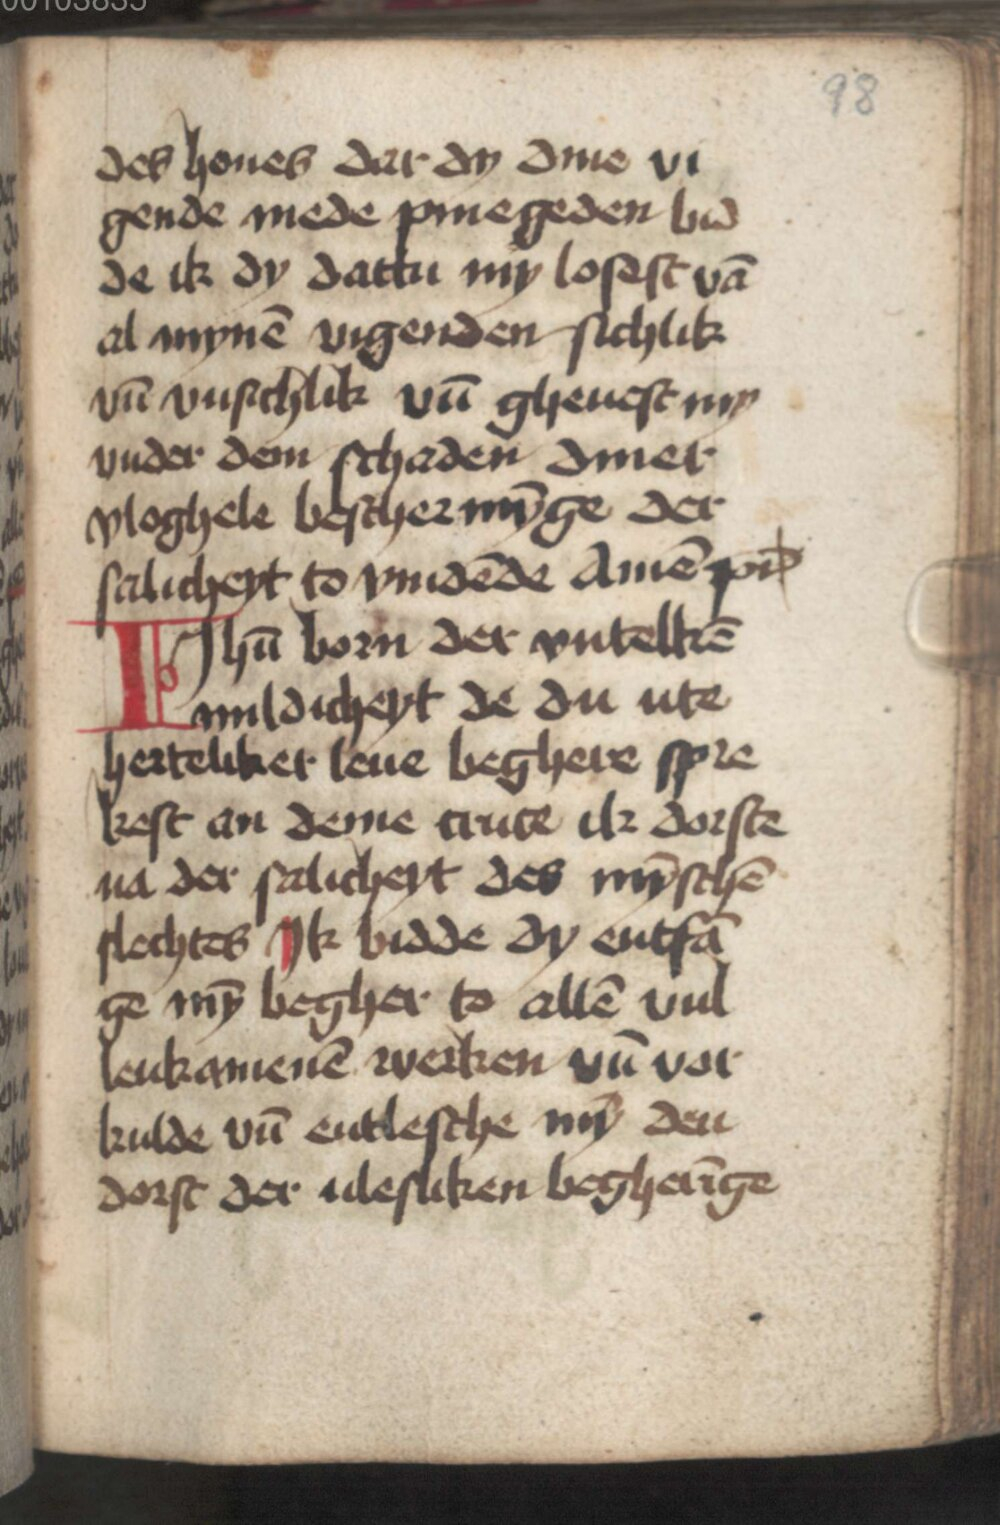 00103835
98
des houes dar dy dine vi
gende mede pinegeden bid
de ik dy dattu my losest vā
al mynē vigenden sichlik
vn̄ vnsichlik vn̄ gheuest my
vnder dem schaden diner
vloghele beschermȳge der
salicheyt to vindēde Amē pr̄
Ihū born der vntelkē
mildicheyt de du ute
herteliker leue beghere spre
kest an deme cruce ik dorste
na der salicheyt des mȳschē
slechtes Ik bidde dy entfā
ge mȳ begher to allē vul
lenkamenē werken vn̄ vor
kulde vn̄ entlesche mȳ den
dorst der vlesliken begherīge